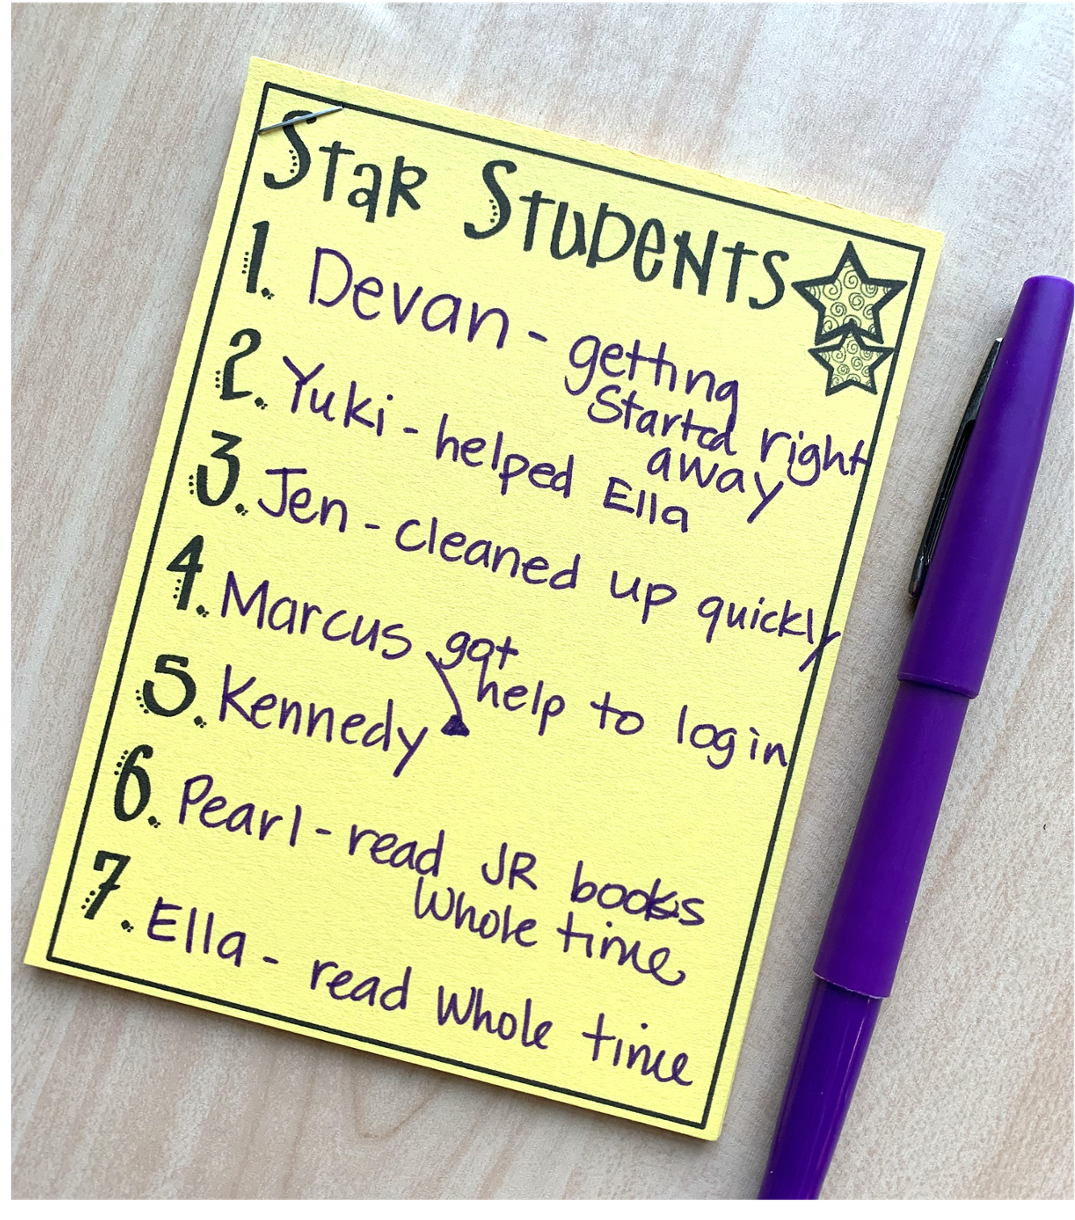 Star Students
1. Devan - getting
Started right
away
2. Yuki - helped Ella
3. Jen - cleaned up quickly
4. Marcus got
help to login
5. Kennedy
6. Pearl - read JR books
Whole time
7. Ella - read Whole time